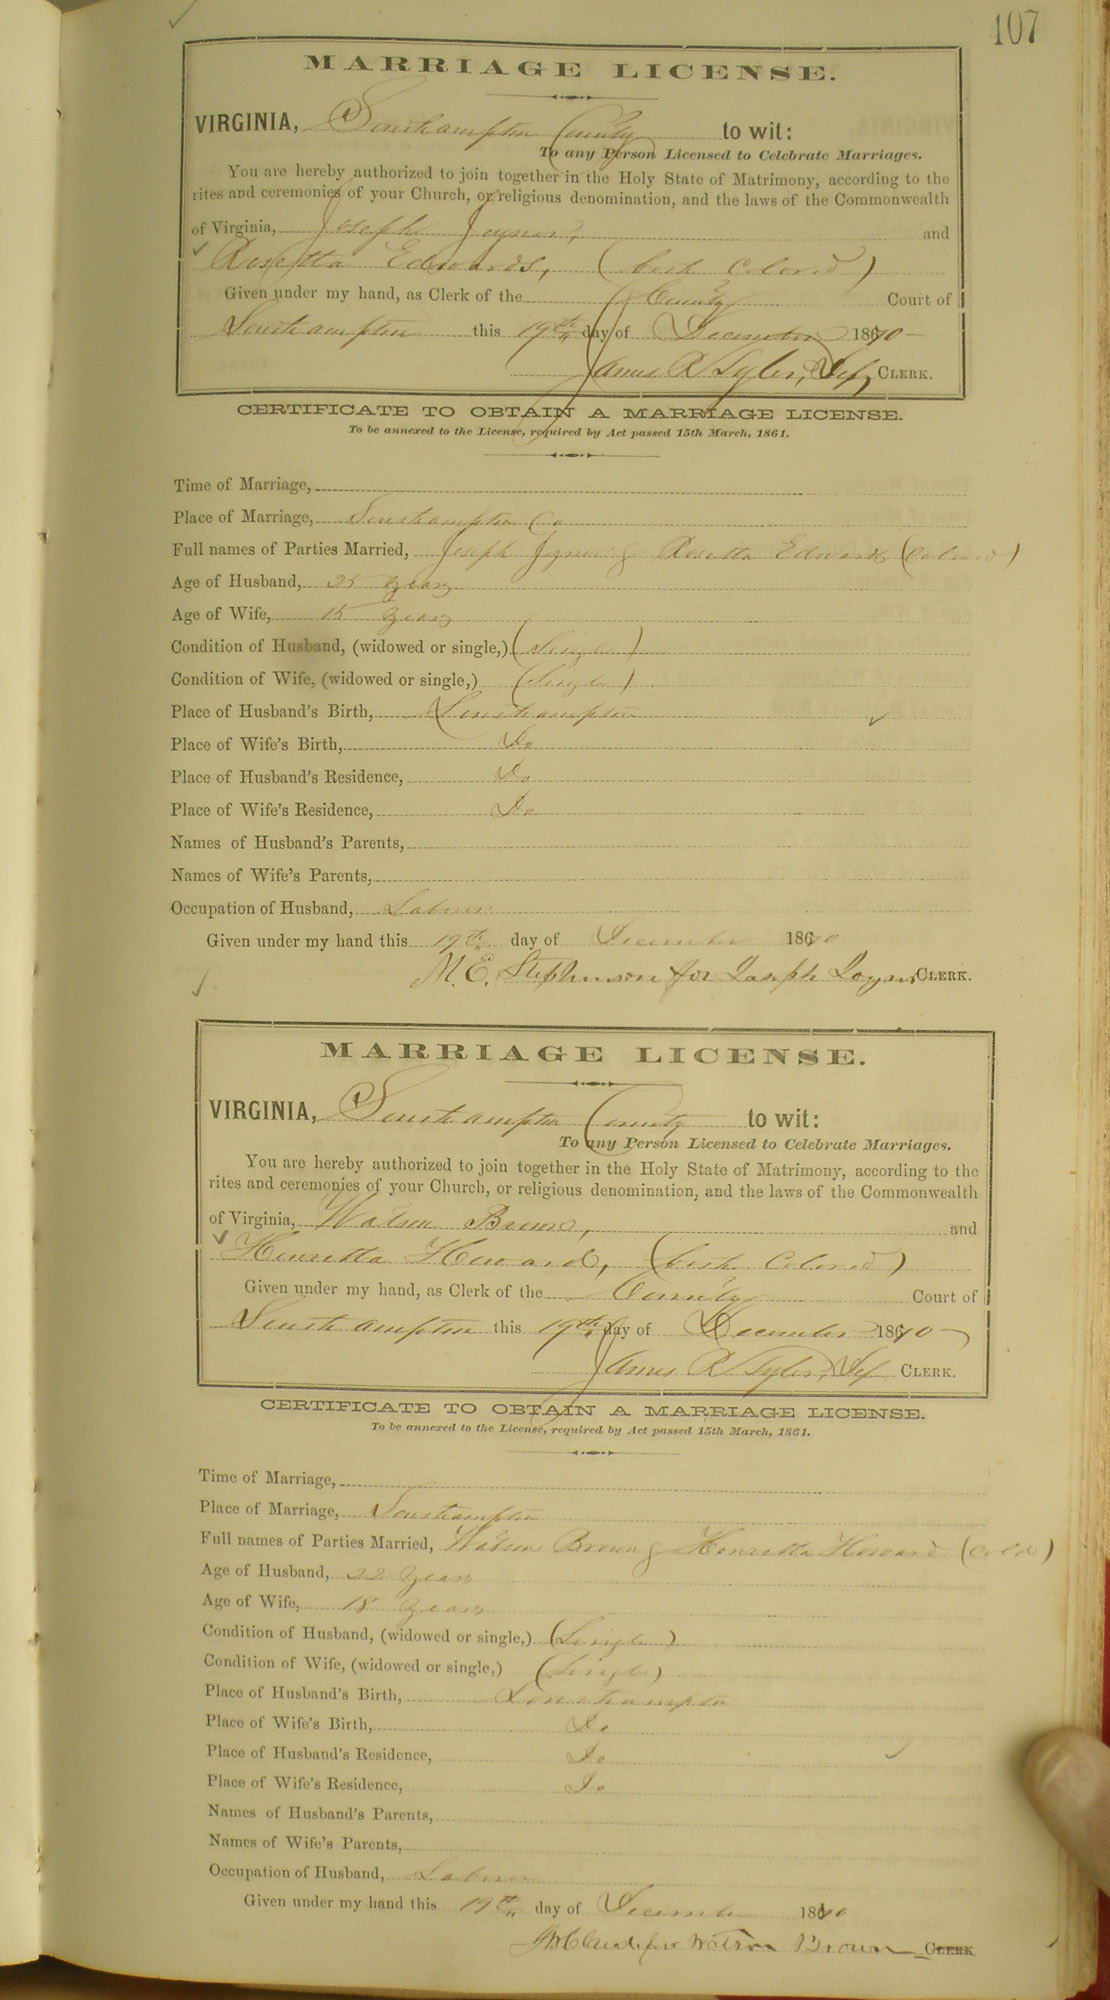 107
MARRIAGE LICENSE.
VIRGINIA, Southampton County to wit:
To any Person Licensed to Celebrate Marriages.
You are hereby authorized to join together in the Holy State of Matrimony, according to the
rites and ceremonies of your Church, or religious denomination, and the laws of the Commonwealth
of Virginia, Joseph Joyner, and
Rosetta Edwards, (both Colored)
Given under my hand, as Clerk of the County Court of
Southampton this 19th day of December 1870
James R Tyler, Dep, CLERK.
CERTIFICATE TO OBTAIN A MARRIAGE LICENSE.
To be annexed to the License, required by Act passed 15th March, 1861.
Time of Marriage,
Place of Marriage, Southampton Co
Full names of Parties Married, Joseph Joyner & Rosetta Edwards (Colored)
Age of Husband, 25 Years
Age of Wife, 15 Years
Condition of Husband, (widowed or single,) (Single)
Condition of Wife, (widowed or single,) (Single)
Place of Husband's Birth, Southampton
Place of Wife's Birth, Do
Place of Husband's Residence, Do
Place of Wife's Residence, Do
Names of Husband's Parents,
Names of Wife's Parents,
Occupation of Husband, Laborer
Given under my hand this 19th day of December 1870
M. E. Stephenson for Joseph Joyner CLERK.
MARRIAGE LICENSE.
VIRGINIA, Southampton County to wit:
To any Person Licensed to Celebrate Marriages.
You are hereby authorized to join together in the Holy State of Matrimony, according to the
rites and ceremonies of your Church, or religious denomination, and the laws of the Commonwealth
of Virginia, Watson Brown, and
Henrietta Howard, (both Colored)
Given under my hand, as Clerk of the County Court of
Southampton this 19th day of December 1870
James R Tyler, Dep CLERK.
CERTIFICATE TO OBTAIN A MARRIAGE LICENSE.
To be annexed to the License, required by Act passed 15th March, 1861.
Time of Marriage,
Place of Marriage, Southampton
Full names of Parties Married, Watson Brown & Henrietta Howard (Cold)
Age of Husband, 22 Years
Age of Wife, 18 Years
Condition of Husband, (widowed or single,) (Single)
Condition of Wife, (widowed or single,) (Single)
Place of Husband's Birth, Southampton
Place of Wife's Birth, Do
Place of Husband's Residence, Do
Place of Wife's Residence, Do
Names of Husband's Parents,
Names of Wife's Parents,
Occupation of Husband, Laborer
Given under my hand this 19th day of December 1870
for Watson Brown CLERK